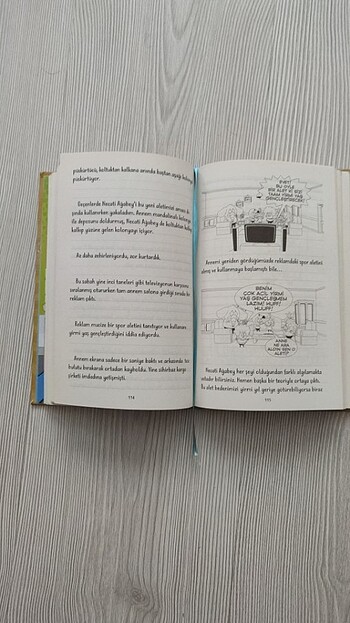 püskürtücü, koltuktan kalkana anında baştan aşağı kolonya
püskürtüyor.
Geçenlerde Necati Ağabey'i bu yeni aletimizi amacı dı-
şında kullanırken yakaladım. Annem mandalinalı kolonya
ile deposunu doldurmuş, Necati Ağabey de koltuktan
kalkıp yüzüne gelen kolonyayı içiyor.
Az daha zehirleniyordu, zor kurtardık.
Bu sabah yine inci taneleri gibi televizyonun karşısına
sıralanmış otururken tam annem salona girdiği sırada bir
reklam çıktı.
Reklam mucize bir spor aletini tanıtıyor ve kullananı
yirmi yaş gençleştirdiğini iddia ediyordu.
Annem ekrana sadece bir saniye baktı ve arkasında toz
bulutu bırakarak ortadan kayboldu. Yine sihirbaz kargo
şirketi imdadına yetişmişti.
114
EVET!
BU ÖYLE
BİR ALET Kİ SİZİ
TAM YİRMİ YAŞ
GENÇLEŞTİRECEK!
Annemi yeniden gördüğümüzde reklamdaki spor aletini
almış ve kullanmaya başlamıştı bile...
BENİM
ÇOK ACİL YİRMİ
YAŞ GENÇLEŞMEM
LAZIM! HUFF!
HUUFF!
ANNE
NE ARA
ALDIN SEN O
ALETİ?
Necati Ağabey her şeyi olduğundan farklı algılamakta
ustadır bilirsiniz. Hemen başka bir teoriyle ortaya çıktı.
Bu alet bedenimizi yirmi yıl geriye götürebiliyorsa biraz
115